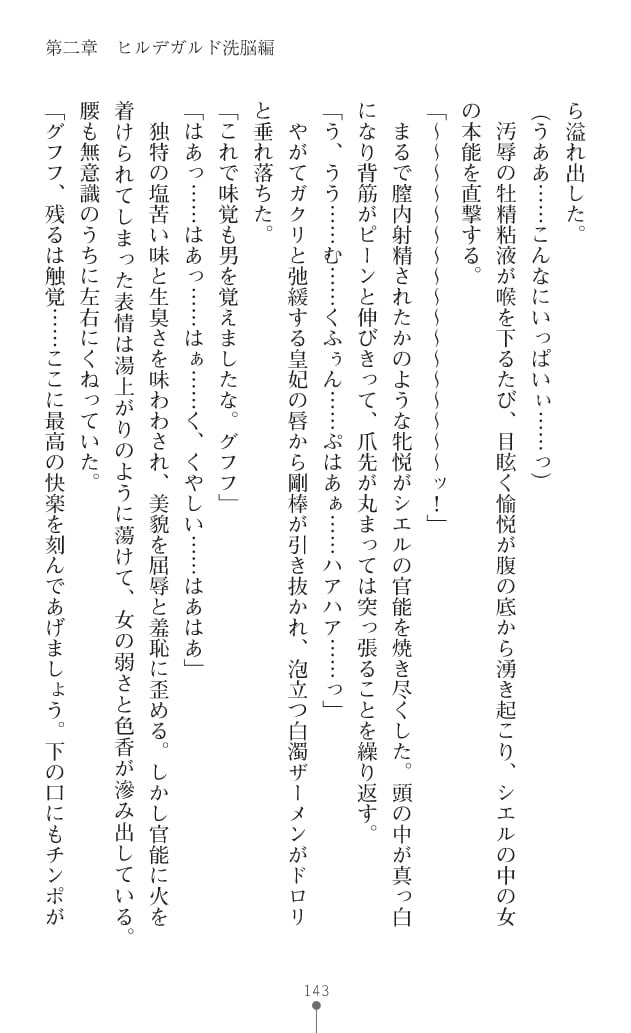 第二章　ヒルデガルド洗脳編
ら溢れ出した。
(うああ……こんなにいっぱいぃ……っ)
　汚辱の牡精粘液が喉を下るたび、目眩く愉悦が腹の底から湧き起こり、シエルの中の女
の本能を直撃する。
「～～～～～～～～～～～～～～～～ッ！」
　まるで膣内射精されたかのような牝悦がシエルの官能を焼き尽くした。頭の中が真っ白
になり背筋がピーンと伸びきって、爪先が丸まっては突っ張ることを繰り返す。
「う、うう……む……くふぅん……ぷはあぁ……ハアハア……っ」
　やがてガクリと弛緩する皇妃の唇から剛棒が引き抜かれ、泡立つ白濁ザーメンがドロリ
と垂れ落ちた。
「これで味覚も男を覚えましたな。グフフ」
「はあっ……はあっ……はぁ……く、くやしい……はあはあ」
　独特の塩苦い味と生臭さを味わわされ、美貌を屈辱と羞恥に歪める。しかし官能に火を
着けられてしまった表情は湯上がりのように蕩けて、女の弱さと色香が滲み出している。
腰も無意識のうちに左右にくねっていた。
「グフフ、残るは触覚……ここに最高の快楽を刻んであげましょう。下の口にもチンポが
143